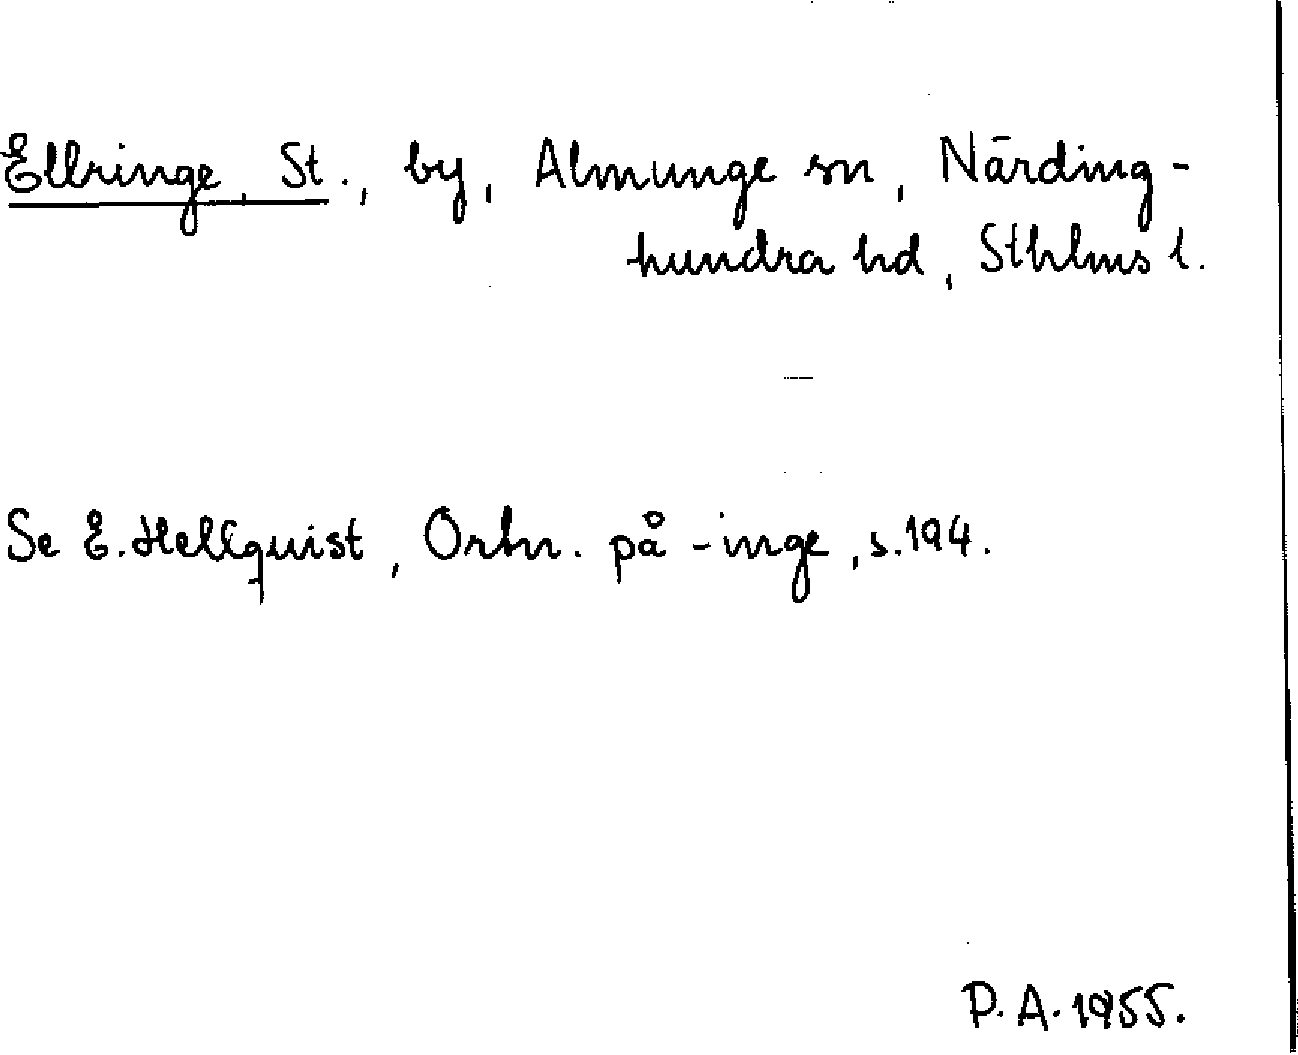 Ellringe, St., by, Almunge sn, Närding-
hundra hd, Sthlms l.
Se E. Hellquist, Ortn. på -inge, s. 194.
P. A. 1955.